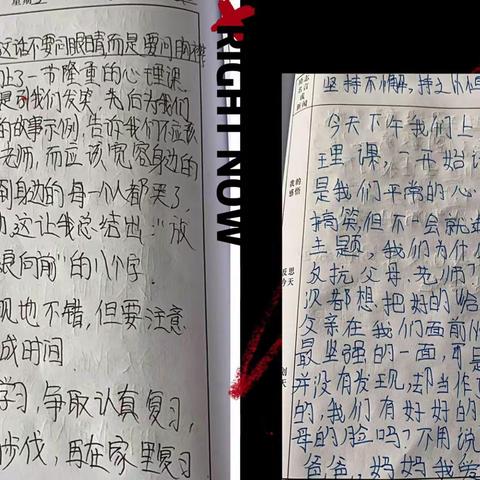 星期
这话不要问眼睛而是要问
上了一节隆重的心理课
是引我们发笑,先后为我们
的故事示例,告诉我们不应该
老师,而应该宽容身边的
到身边的每一个人都哭了
这让我总结出:"放
向前"的八个字.
也不错,但要注意
成时间
学习,争取认真复习,
步伐,再在家里复习
RIGHT NOW
坚持不懈,持之以恒
今天下午我们上
理课,一开始让
是我们平常的心
搞笑,但不一会就进
主题,我们为什么
反抗父母、老师?
次都想把好的给
父亲在我们面前
最坚强的一面,可是
并没有发现,却当作
的,我们有好好的
母的脸吗?不用说
爸爸,妈妈我爱
我的
感悟
反思
今天